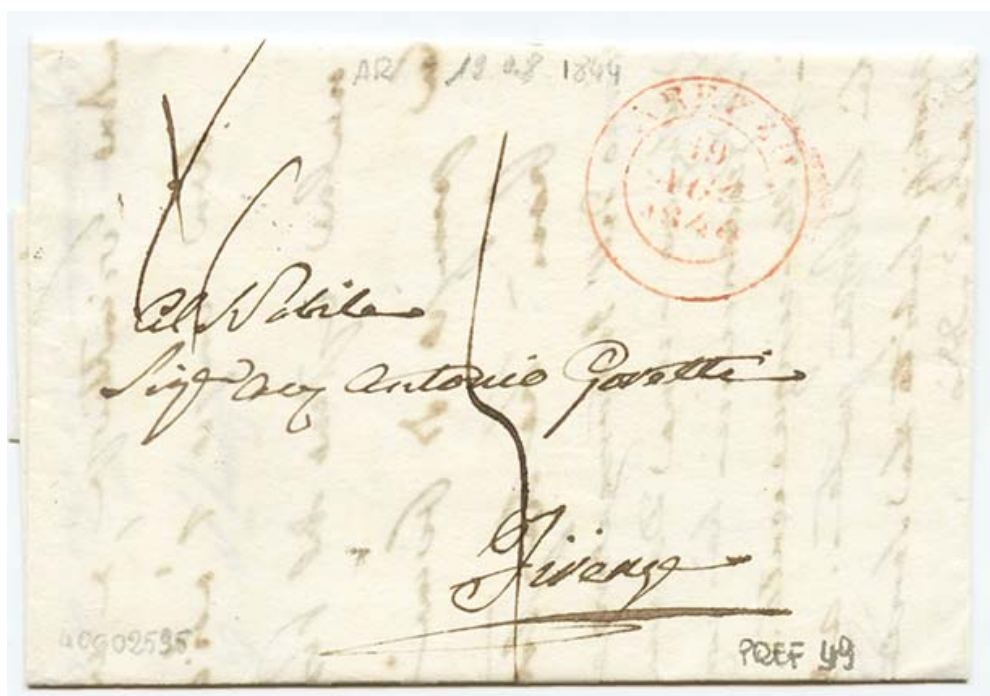 AR 19 08 1844
AREZZO
19
AGO
1844
Al Nobile
Sigr Avv Antonio Govetti
Firenze
40G02595
PREF 49